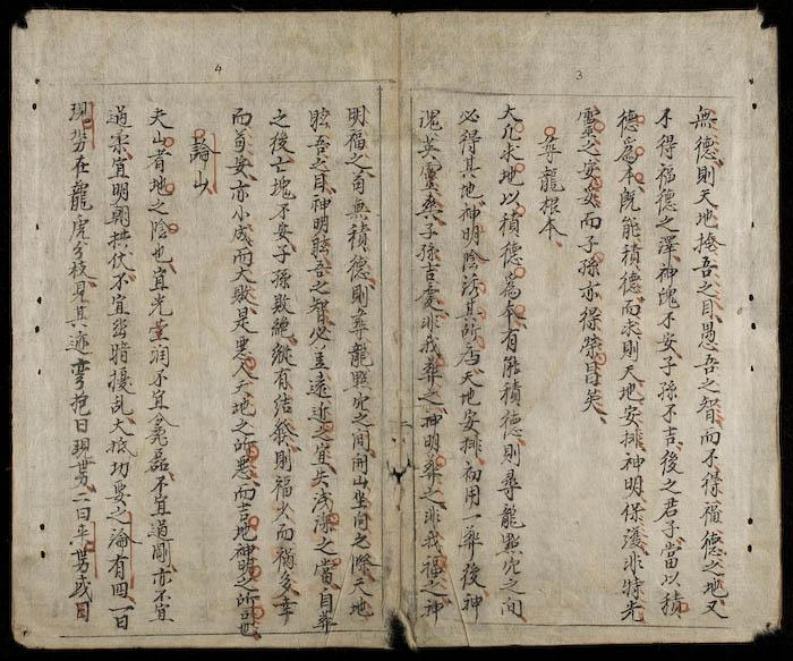 3
無德則天地掩吾之目愚吾之智而不得福德之地又
不得福德之澤神魄不安子孫不吉後之君子當以積
德爲本既能積德而求則天地安排神明保護非特先
靈之安妥而子孫亦得榮昌矣
尋龍根本
大凡求地以積德爲本有能積德則尋龍點穴之间
必得其地神明陰誘其所向天地安排初用一葬後神
魂英靈與子孫吉慶非我葬之神明葬之非我福之神
4
明福之苟無積德則尋龍點穴之间開山坐向之際天地
眩吾之目神明眩吾之智必差遠近之宜失浅深之當自葬
之後亡塊不安子孫敗絶縱有結發則福少而禍多幸
而苟安亦小成而大敗是悪人天地之所悪而吉地神明之所
論山
夫山者地之陰也宜光葷润不宜麄磊不宜過剛亦不宜
過柔宜明朝拱伏不宜岩暗擾乱大抵功要之論有四一曰
現势在龍虎分枝見其迹亦抱曰現势二曰平势或曰